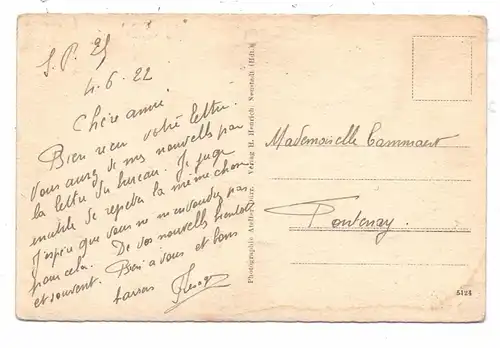 S. P. 25
4. 6. 22
Chère amie
Bien reçu votre lettre.
Vous aurez de mes nouvelles par
la lettre du bureau. Je juge
inutile de répéter la même chose
J'espère que vous ne m'en voudrez pas
pour cela. De vos nouvelles
et souvent. Bien à vous et bons
Photographie Verlag H. Henrich Neustadt (Hdt.)
Mademoiselle Cammaert
Fontenay.
5124